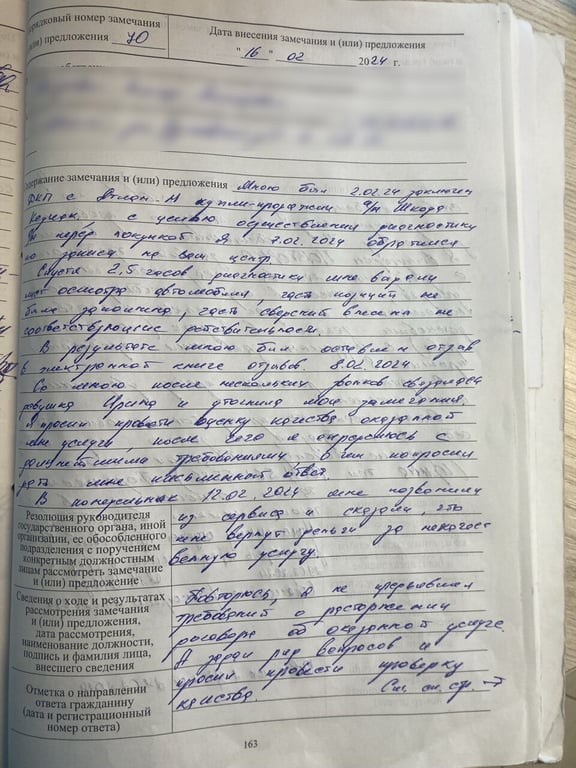 порядковый номер замечания
(или) предложения 70
Дата внесения замечания и (или) предложения
"16" 02 2024 г.
Содержание замечания и (или) предложения Мною был 2.02.24 заключен
ДКП с Атлан-А купли-продажи а/м Шкода
Кодиак. с целью осуществления диагностики
а/м перед покупкой я 7.02.2024 обратился
по записи на ваш центр.
Спустя 2,5 часов диагностики мне выдали
лист осмотра автомобиля, часть позиций не
была заполнена, часть сведений внесена не
соответствующие действительности.
В результате мною был оставлен отзыв
в электронной книге отзывов. 8.02.2024
Со мною после нескольких звонков связалась
девушка Ирина и уточнила мои замечания.
я просил провести оценку качества оказанной
мне услуги, после чего я определюсь с
дальнейшими требованиями, о чем попросил
дать мне письменный ответ.
В понедельник 12.02.2024 мне позвонили
из сервиса и сказали, что
мне вернут деньги за некачест
венную услугу.
Повторюсь, я не предъявлял
требований о расторжении
договора об оказанной услуге.
А задал ряд вопросов и
просил провести проверку
качества. См. сл. стр. →
Резолюция руководителя
государственного органа, иной
организации, ее обособленного
подразделения с поручением
конкретным должностным
лицам рассмотреть замечание
и (или) предложение
Сведения о ходе и результатах
рассмотрения замечания
и (или) предложения,
дата рассмотрения,
наименование должности,
подпись и фамилия лица,
внесшего сведения
Отметка о направлении
ответа гражданину
(дата и регистрационный
номер ответа)
163